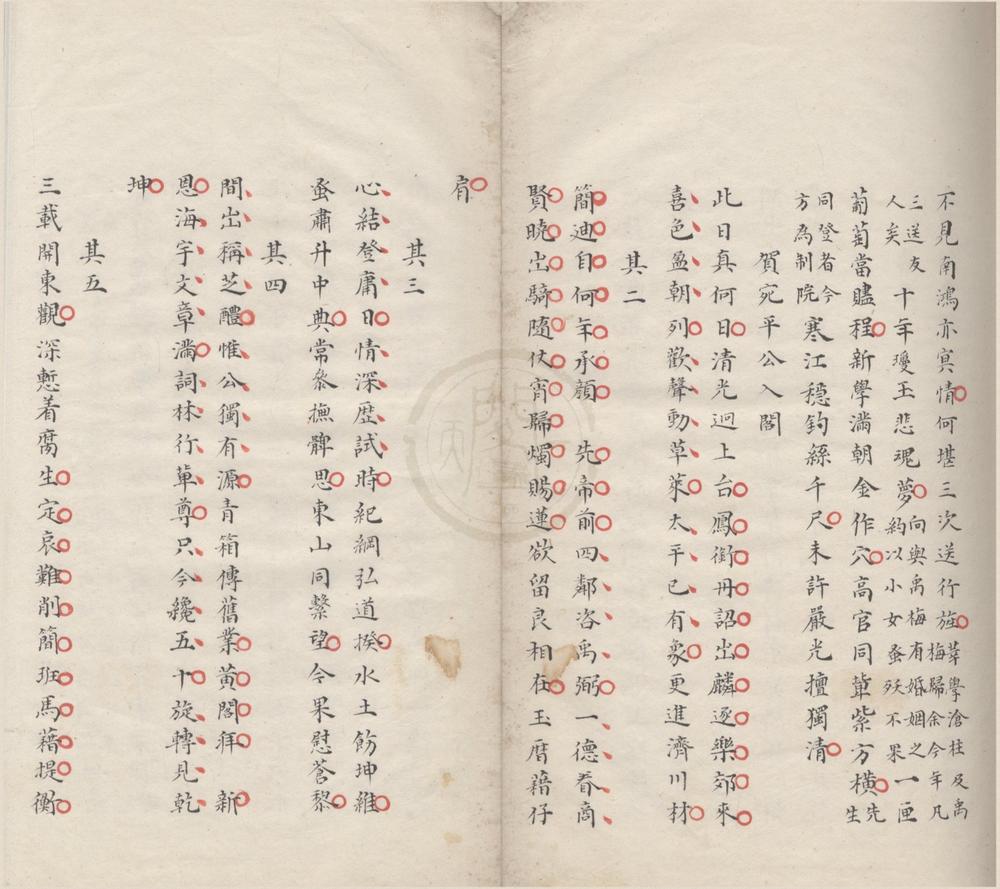 不見南鴻亦冥情何堪三次送行旌葉學滄柱及禹梅歸余今年凡
三送友人矣十年瓊玉悲魂夢向與禹梅有婚姻之約以小女蚤殀不果一匣
葡萄當贐程新學滿朝金作穴高官同輩紫方橫先生
同登者今方為制院寒江穩釣絲千尺未許嚴光擅獨清
賀宛平公入閣
此日真何日清光迥上台鳳銜丹詔出麟逐樂郊來
喜色盈朝列歡聲動草萊太平已有象更進濟川材
其二
簡迪自何年承顏 先帝前四鄰咨禹弼一德眷商
賢曉出騎隨仗宵歸燭賜蓮欲留良相在玉曆藉仔
肩
其三
心結登庸日情深歷試時紀綱弘道揆水土飭坤維
蚤肅升中典常參撫髀思東山同繫望今果慰蒼黎
其四
間出稱芝醴惟公獨有源青箱傳舊業黃閣拜 新
恩海宇文章滿詞林行輩尊只今纔五十旋轉見乾
坤
其五
三載開東觀深慙着腐生定哀難削簡班馬藉提衡